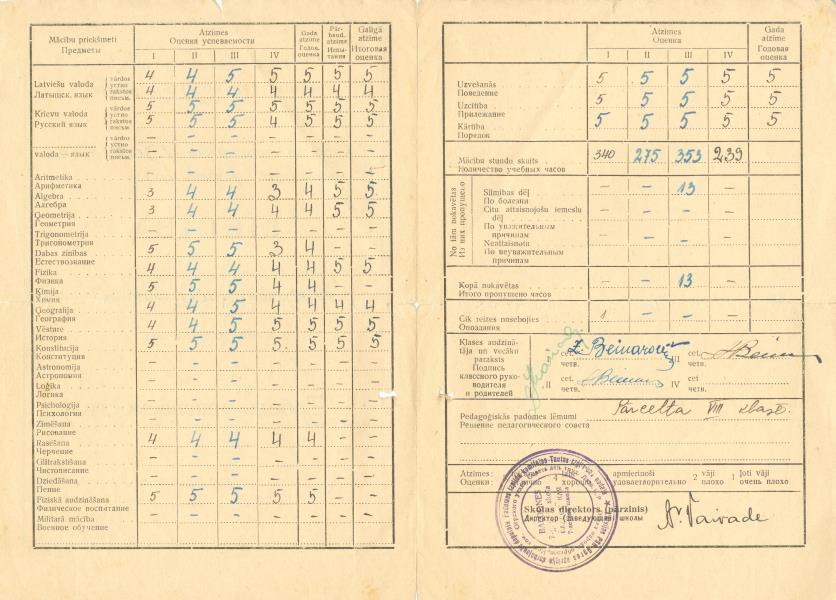 Mācību priekšmeti
Предметы
Atzīmes
Оценки успеваемости
I II III IV
Gada atzīme
Годов. оценка
Pārbaud. atzīme
Испытания
Galīgā atzīme
Итоговая оценка
Latviešu valoda vārdos устно 4 4 5 5 5 5 5
Латышск. язык rakstos письм. 4 4 4 4 4 4 4
Krievu valoda vārdos устно 5 5 5 5 5 5 5
Русский язык rakstos письм. 5 5 5 4 5 5 5
vārdos устно — — — — — — —
valoda — язык rakstos письм. — — — — — — —
Aritmētika — — — — — — —
Арифметика
Algebra 3 4 4 3 4 5 5
Алгебра
Ģeometrija 3 4 4 4 4 5 5
Геометрия
Trigonometrija — — — — — — —
Тригонометрия
Dabas zinības 5 5 5 3 4 — —
Естествознание
Fizika 4 4 4 4 4 5 5
Физика
Ķīmija 5 5 5 4 4 — —
Химия
Ģeografija 4 4 5 4 4 4 4
География
Vēsture 4 4 5 5 5 5 5
История
Konstitūcija 5 5 5 5 5 5 5
Конституция
Astronomija
Астрономия
Loģika
Логика
Psicholoģija
Психология
Zīmēšana
Рисование
Rasēšana 4 4 4 4 4 — —
Черчение
Glītrakstīšana
Чистописание
Dziedāšana
Пение
Fiziskā audzināšana 5 5 5 5 5 — —
Физическое воспитание
Militarā mācība
Военное обучение
Atzīmes
Оценка
I II III IV
Gada atzīme
Годовая оценка
Uzvešanās 5 5 5 5 5
Поведение
Uzcītība 5 5 5 5 5
Прилежание
Kārtība 5 5 5 5 5
Порядок
Mācību stundu skaits 340 275 353 239
Количество учебных часов
No tām nokavētas
Из них пропущено
Slimības dēļ — — 13
По болезни
Citu attaisnojošu iemeslu dēļ — —
По уважительным причинам
Neattaisnotu — —
По неуважительным причинам
Kopā nokavētas — — 13
Итого пропущено часов
Cik reizes nosebojies 1 — —
Опоздания
Klases audzinātāja un vecāku paraksts
Подпись классного руководителя и родителей
cet. четв.
II cet. четв.
III cet. четв.
IV cet. четв.
Pedagoģiskās padomes lēmumi Pārcelta VIII klasē.
Решение педагогического совета
Atzīmes: 4 labi apmierinoši 2 vāji 1 ļoti vāji
Оценки: хорошо удовлетворительно плохо очень плохо
Skolas direktors (pārzinis)
Директор (заведующий) школы